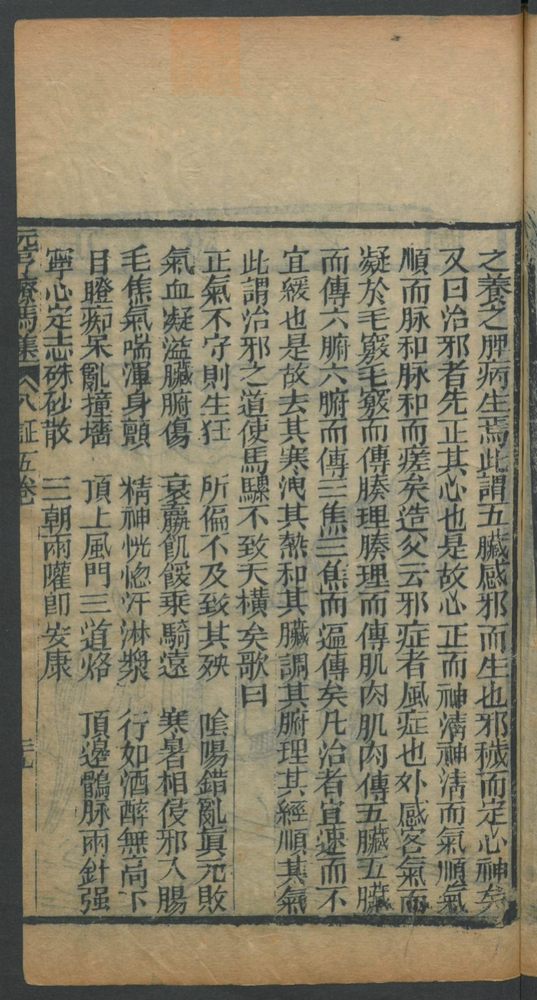 之養之脾病生焉此謂五臟感邪而生也邪穢而定心神矣
又曰治邪者先正其心也是故心正而神清神清而氣順氣
順而脉和脉和而瘥矣造父云邪症者風症也外感客氣而
凝於毛竅毛竅而傳腠理腠理而傳肌肉肌肉傳五臟五臟
而傳六腑六腑而傳三焦三焦而遍傳矣凡治者宜速而不
宜緩也是故去其寒洩其熱和其臟調其腑理其經順其氣
此謂治邪之道使馬騾不致夭橫矣歌曰
正氣不守則生狂 所偏不及致其殃 陰陽錯亂真元敗
氣血凝滋臟腑傷 衰羸飢餒乗騎遠 寒暑相侵邪入腸
毛焦氣喘渾身顫 精神恍惚汗淋漿 行如酒醉無高下
目瞪痴呆亂撞墻 頂上風門三道烙 頂邊鶻脉兩針强
寧心定志硃砂散 三朝兩嚾即安康
元亨療馬集 八証五卷 三九